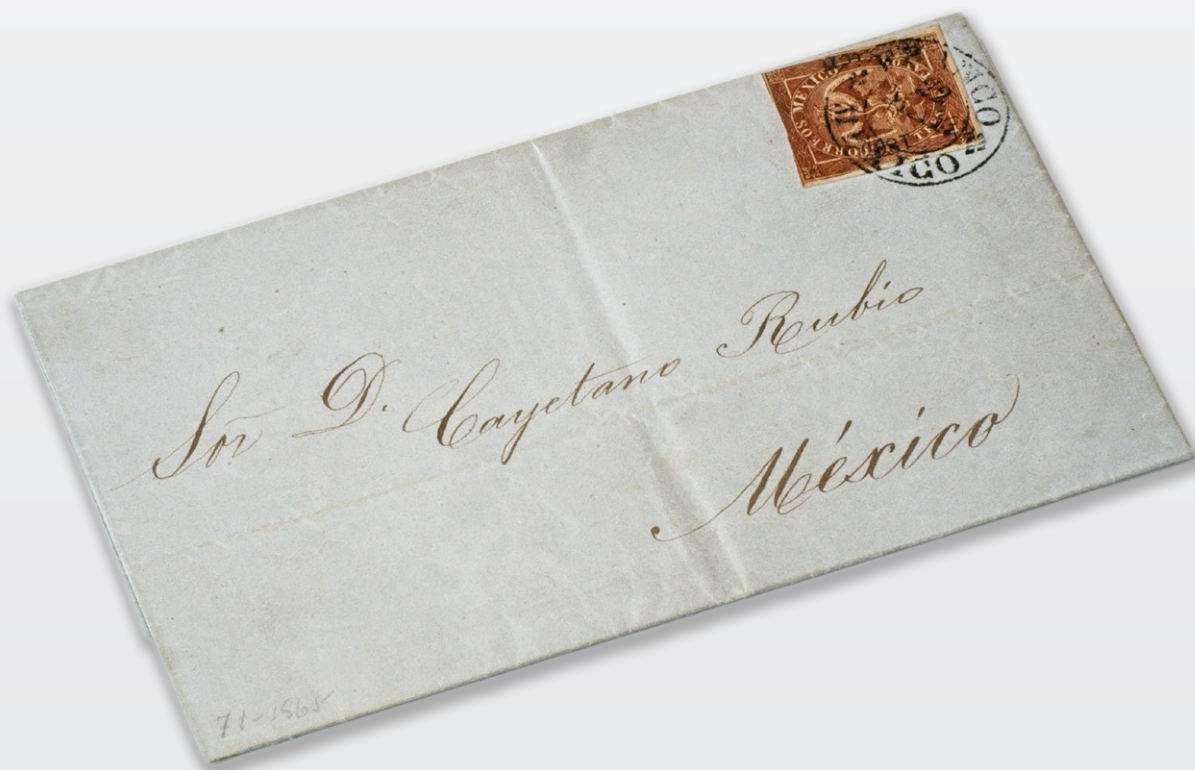 CORREOS MEXICO
Sor D. Cayetano Rubio
México
71-1865